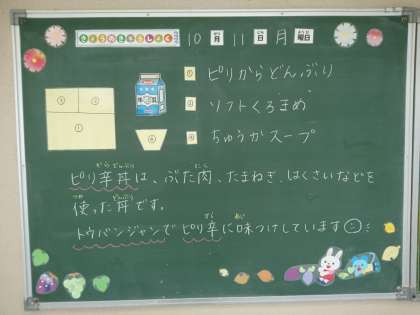 きょうのきゅうしょく 10月11日月曜日
① ピリからどんぶり
② ソフトくろまめ
④ ちゅうかスープ
③ ②
①
④
ピリ辛丼は、ぶた肉、たまねぎ、はくさいなどを
使った丼です。
トウバンジャンでピリ辛に味つけしています